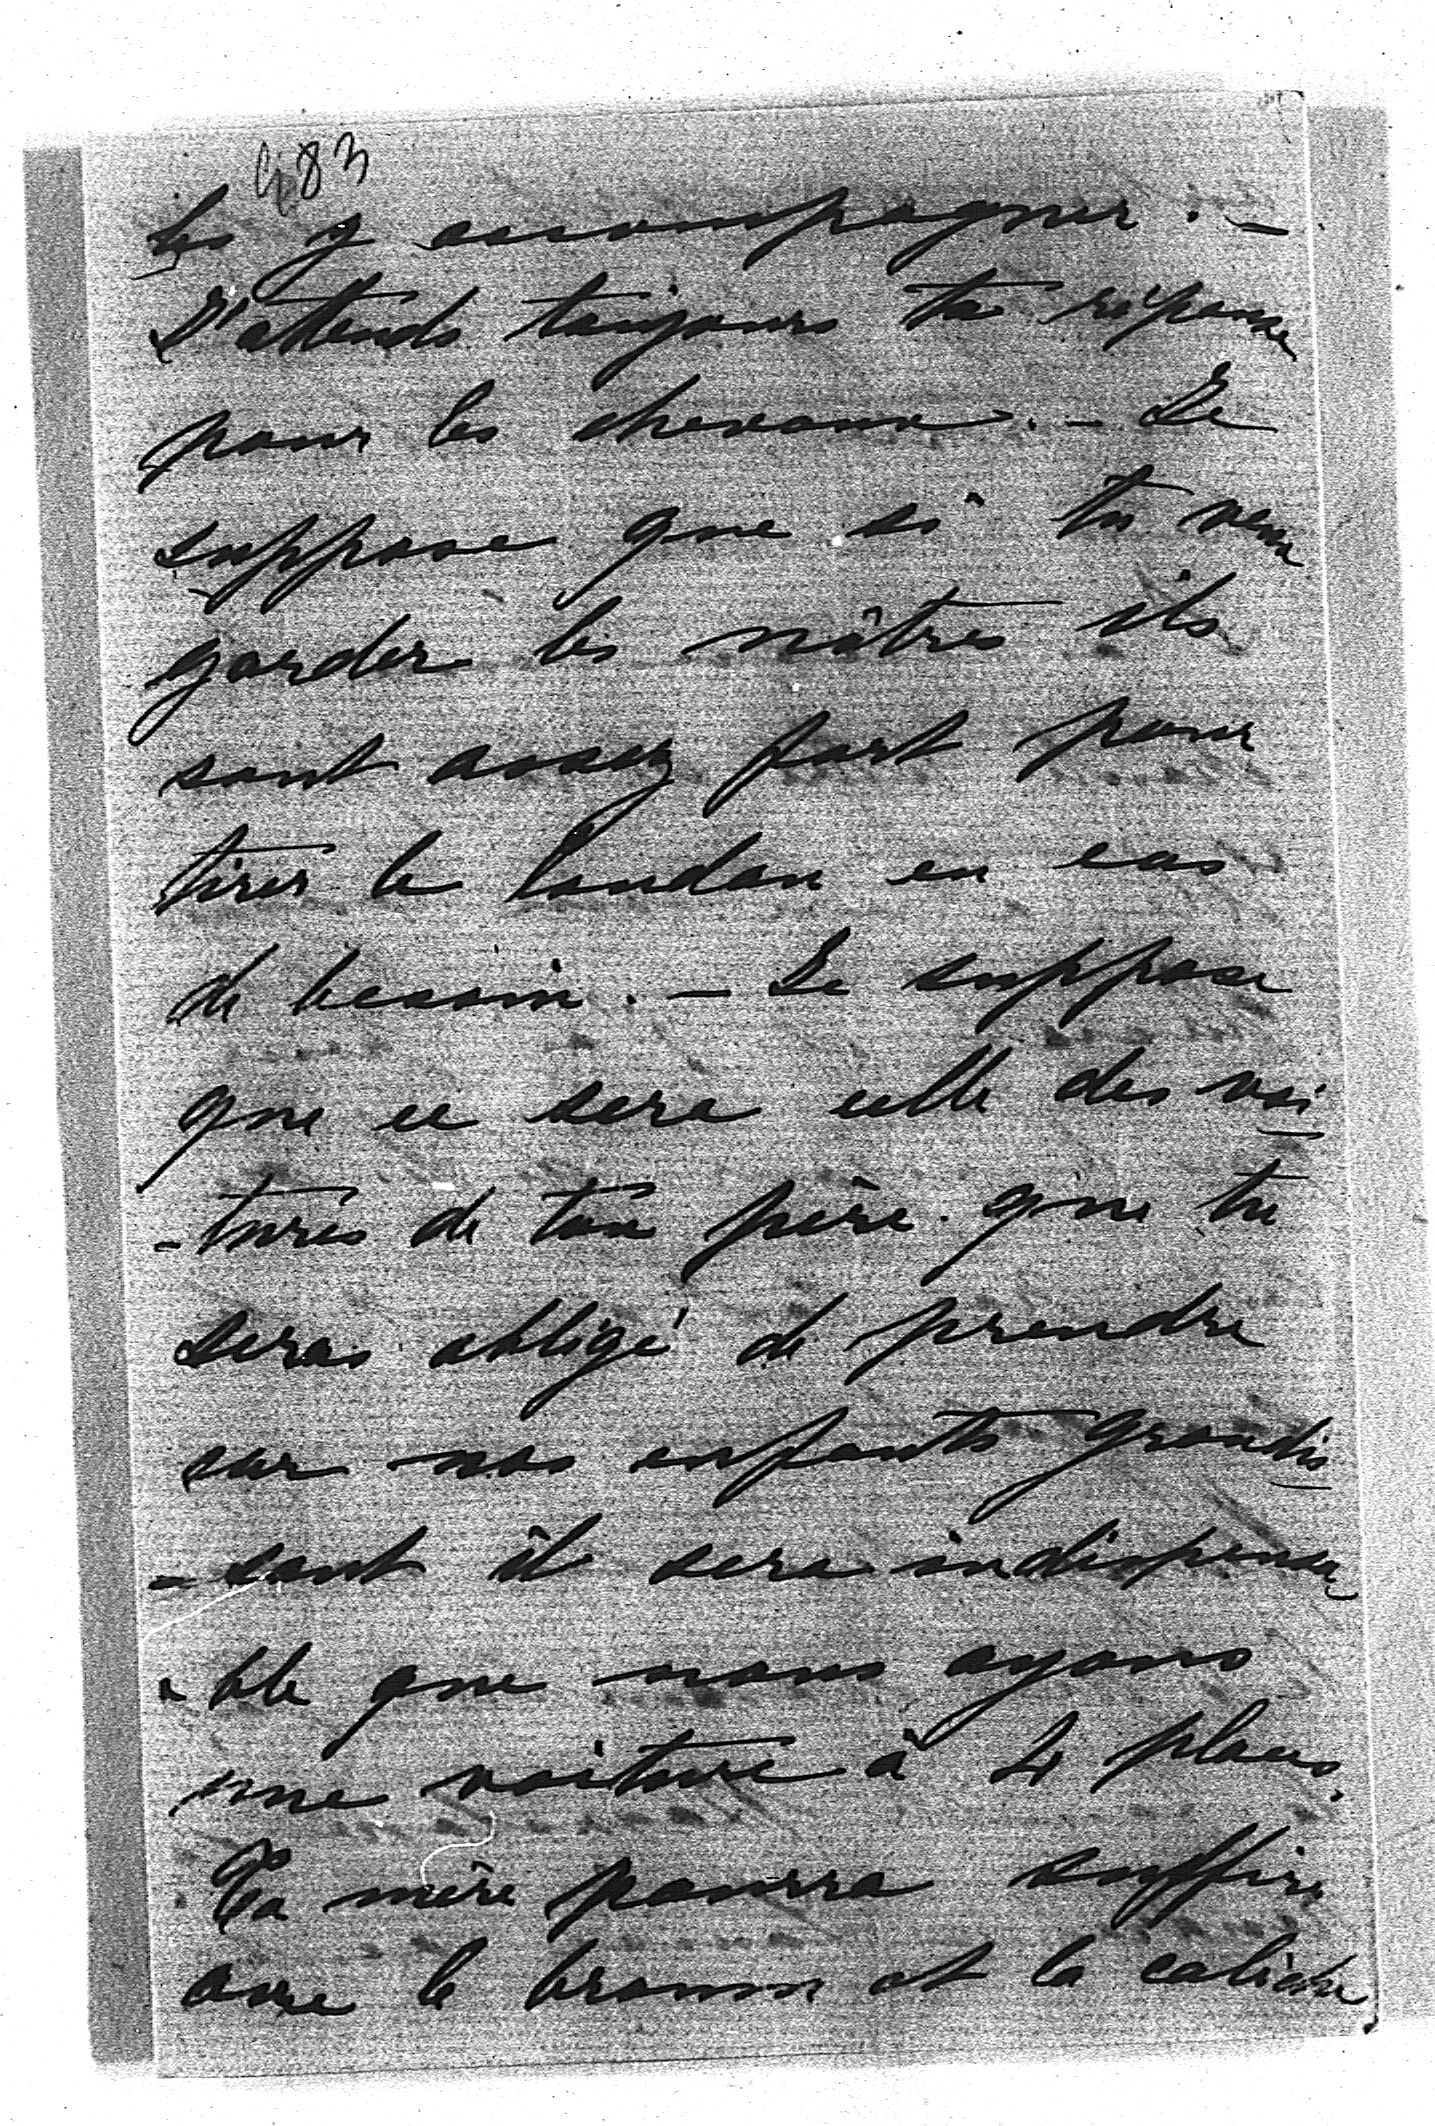 483
les y accompagner. —
J'attends toujours ta réponse
pour les chevaux. — Je
suppose que si tu veux
garder les nôtres ils
sont assez fort pour
tirer le landau en cas
de besoin. — Je suppose
que ce sera celle des voi-
-tures de ton père que tu
seras obligé de prendre
car nos enfants grandis-
-sant il sera indispensa
-ble que nous ayons
une voiture à 4 places.
Ta mère pourra suffire
avec le broum et la calèche